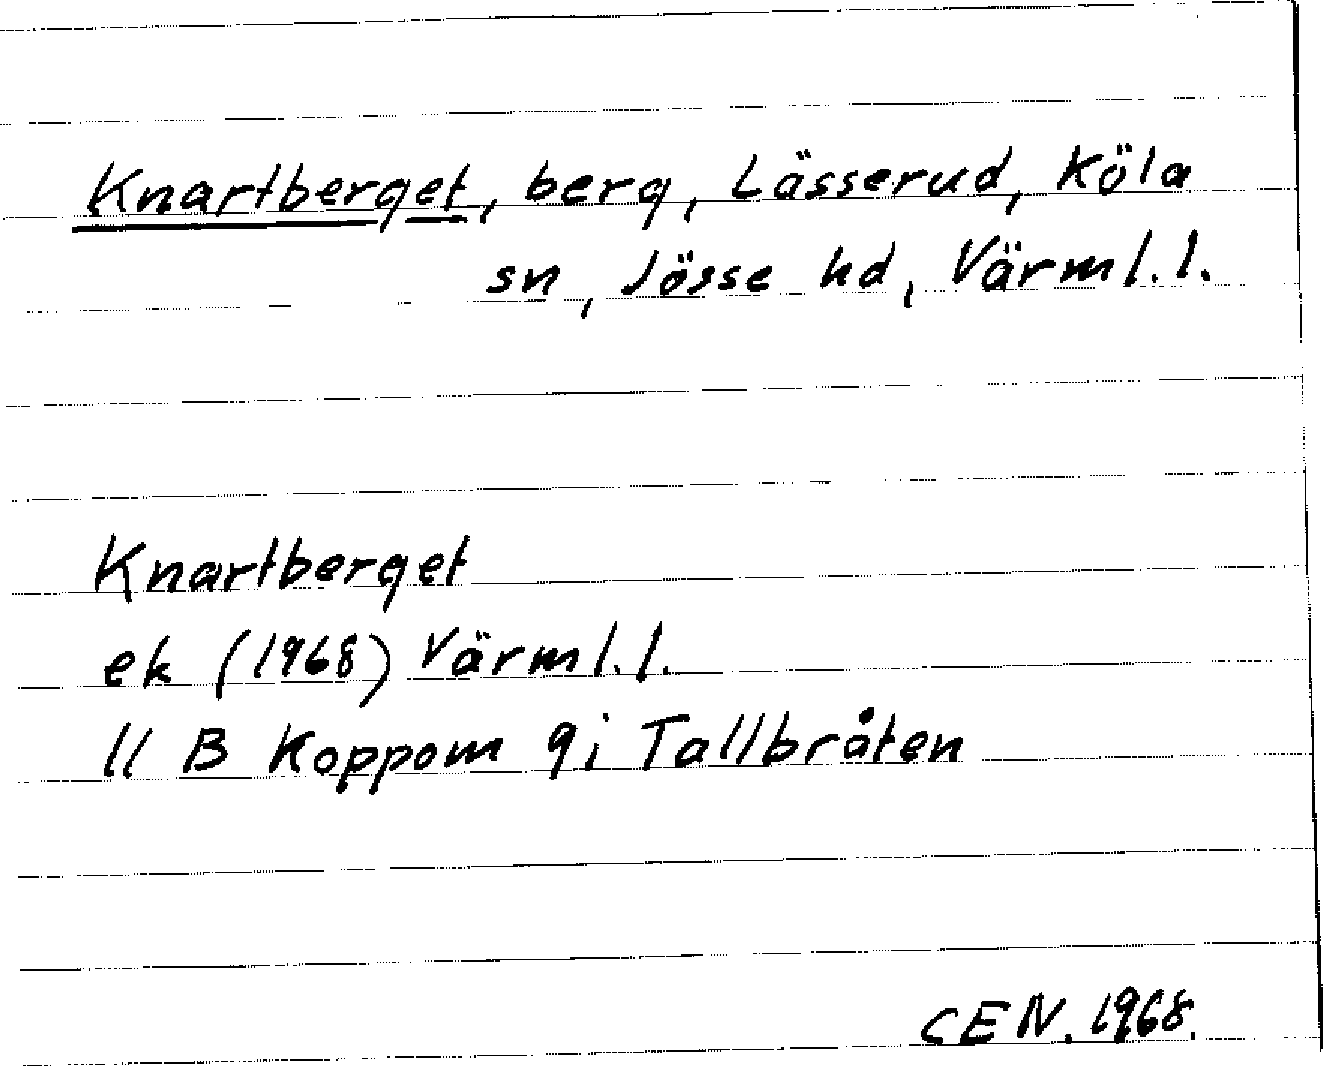 Knartberget, berg, Lässerud, Köla
sn, Jösse hd, Värml.l.
Knartberget
ek (1968) Värml.l.
11 B Koppom 9i Tallbråten
CEN. 1968.